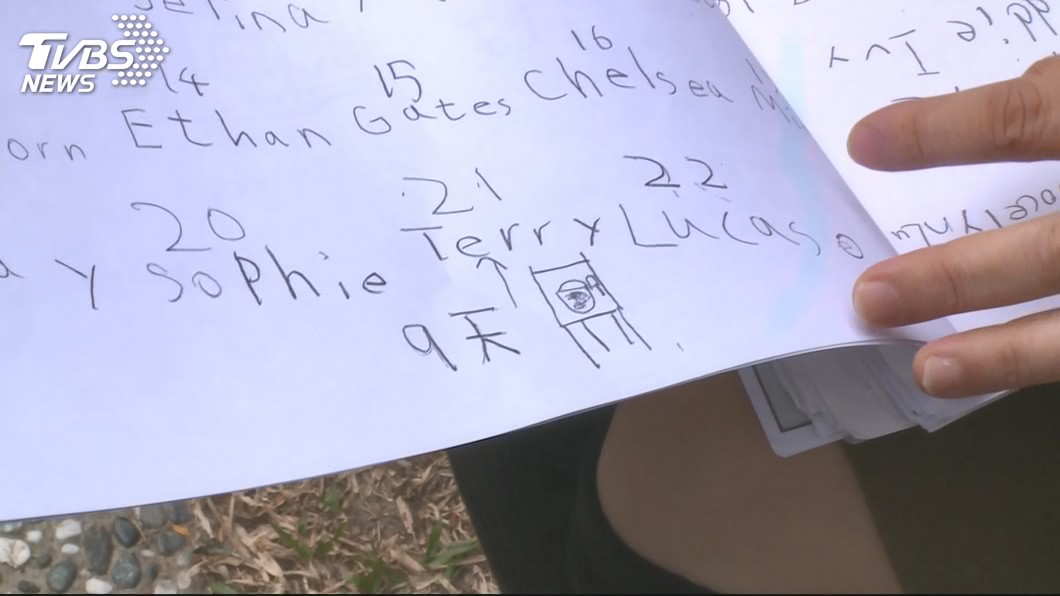 TVBS
NEWS
Selina
14 15 16
orn Ethan Gates Chelsea
20 21 22
a y Sophie Terry Lucas
9天
Ivy